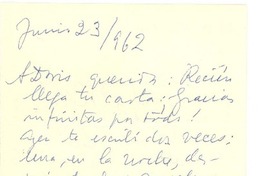 Junio 23/962
A Doris querida: Recién
llega tu carta: Gracias
infinitas por todas!
Ayer te escribí dos veces;
una, en la noche, des-